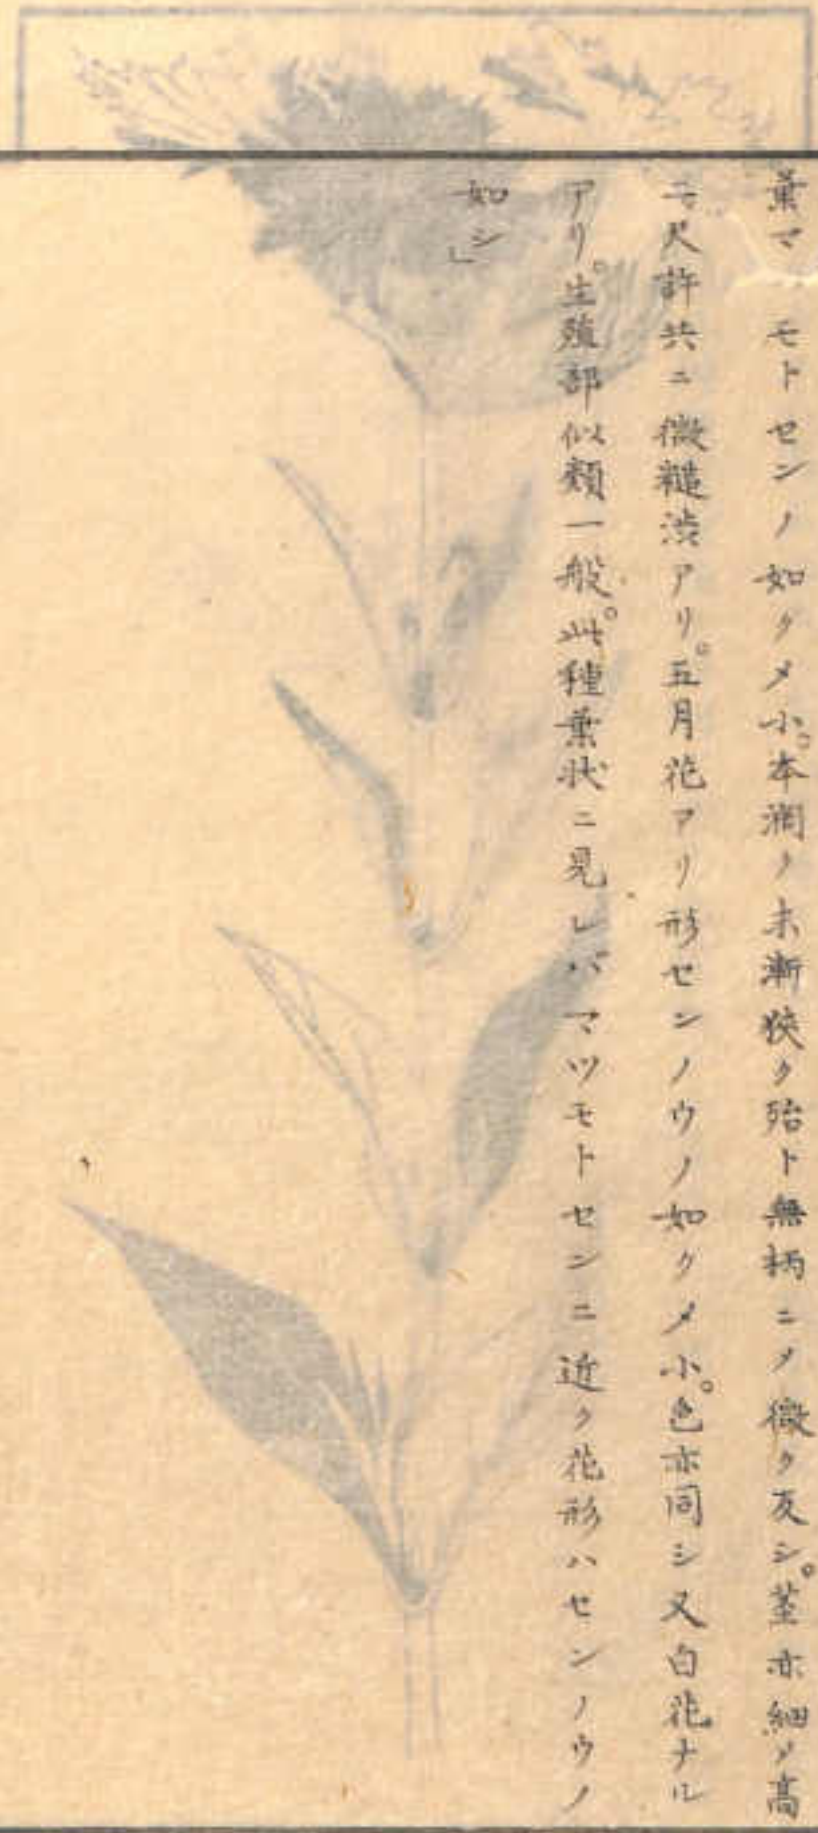 葉マ モトセンノ如クメ小。本濶ク末漸狭ク殆ト無柄ニメ微ク反シ。茎亦細ク高
二尺許共ニ微糙渋アリ。五月花アリ形センノウノ如クメ小。色亦同シ又白花ナル
アリ。生殖部似類一般。此種葉状ニ見レバマツモトセンニ近ク花形ハセンノウノ
如シ」